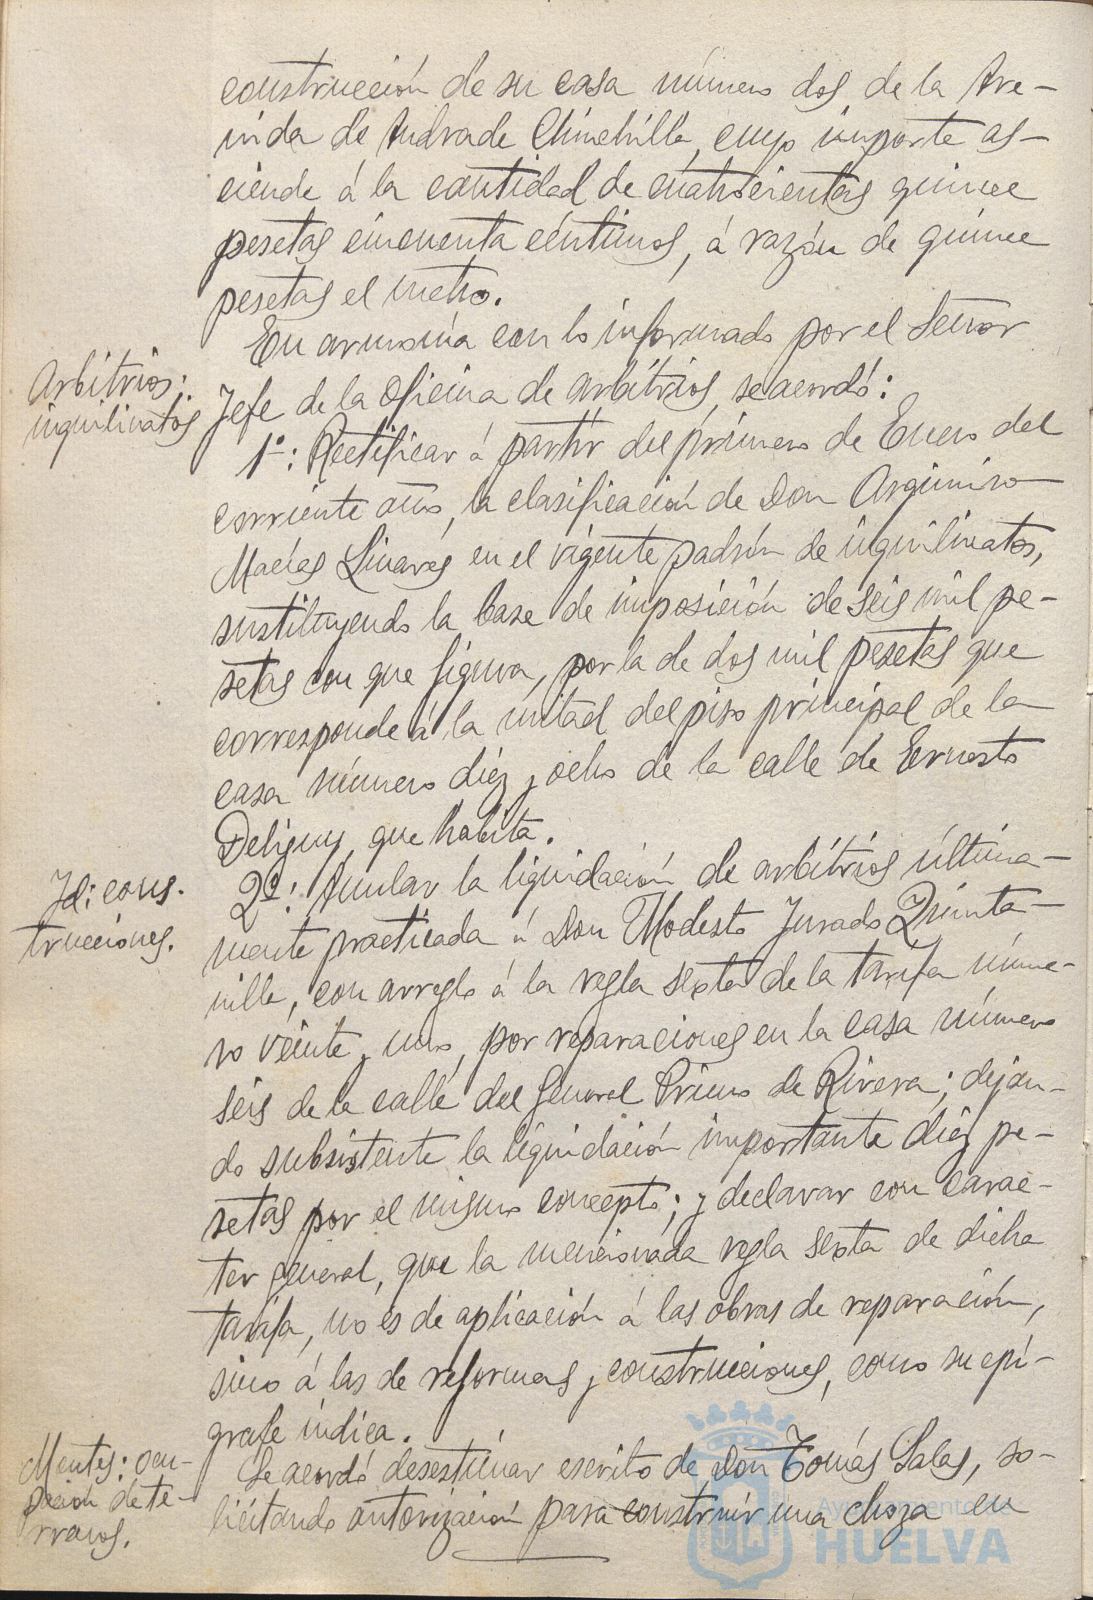 construcción de su casa número dos de la Ave-
nida de Andrade Chinchilla, cuyo importe as-
ciende á la cantidad de cuatrocientas quince
pesetas cincuenta céntimos, á razón de quince
pesetas el metro.
En armonía con lo informado por el Señor
Arbitrios:
inquilinatos
Jefe de la Oficina de arbitrios, se acordó:
1º: Rectificar á partir del primero de Enero del
corriente año, la clasificación de Don Argimiro
Macías Linares en el vigente padrón de inquilinatos,
sustituyendo la base de imposición de seis mil pe-
setas con que figura, por la de dos mil pesetas que
corresponde á la mitad del piso principal de la
casa número diez y ocho de la calle de Ernesto
Deligny, que habita.
Id: cons-
trucciones.
2º: Anular la liquidación de arbitrios última-
mente practicada á Don Modesto Jurado Quinta-
nilla, con arreglo á la regla sexta de la tarifa núme-
ro veinte y uno, por reparaciones en la casa número
seis de la calle del General Primo de Rivera; dejan-
do subsistente la liquidación importante diez pe-
setas por el mismo concepto; y declarar con carac-
ter general, que la mencionada regla sexta de dicha
tarifa, no es de aplicación á las obras de reparación,
sino á las de reformas y construcciones, como su epí-
grafe indica.
Montes: ocu-
pación de te-
rrenos.
Se acordó desestimar escrito de Don Tomás Salas, so-
licitando autorización para construir una choza en
Ayuntamiento de
HUELVA